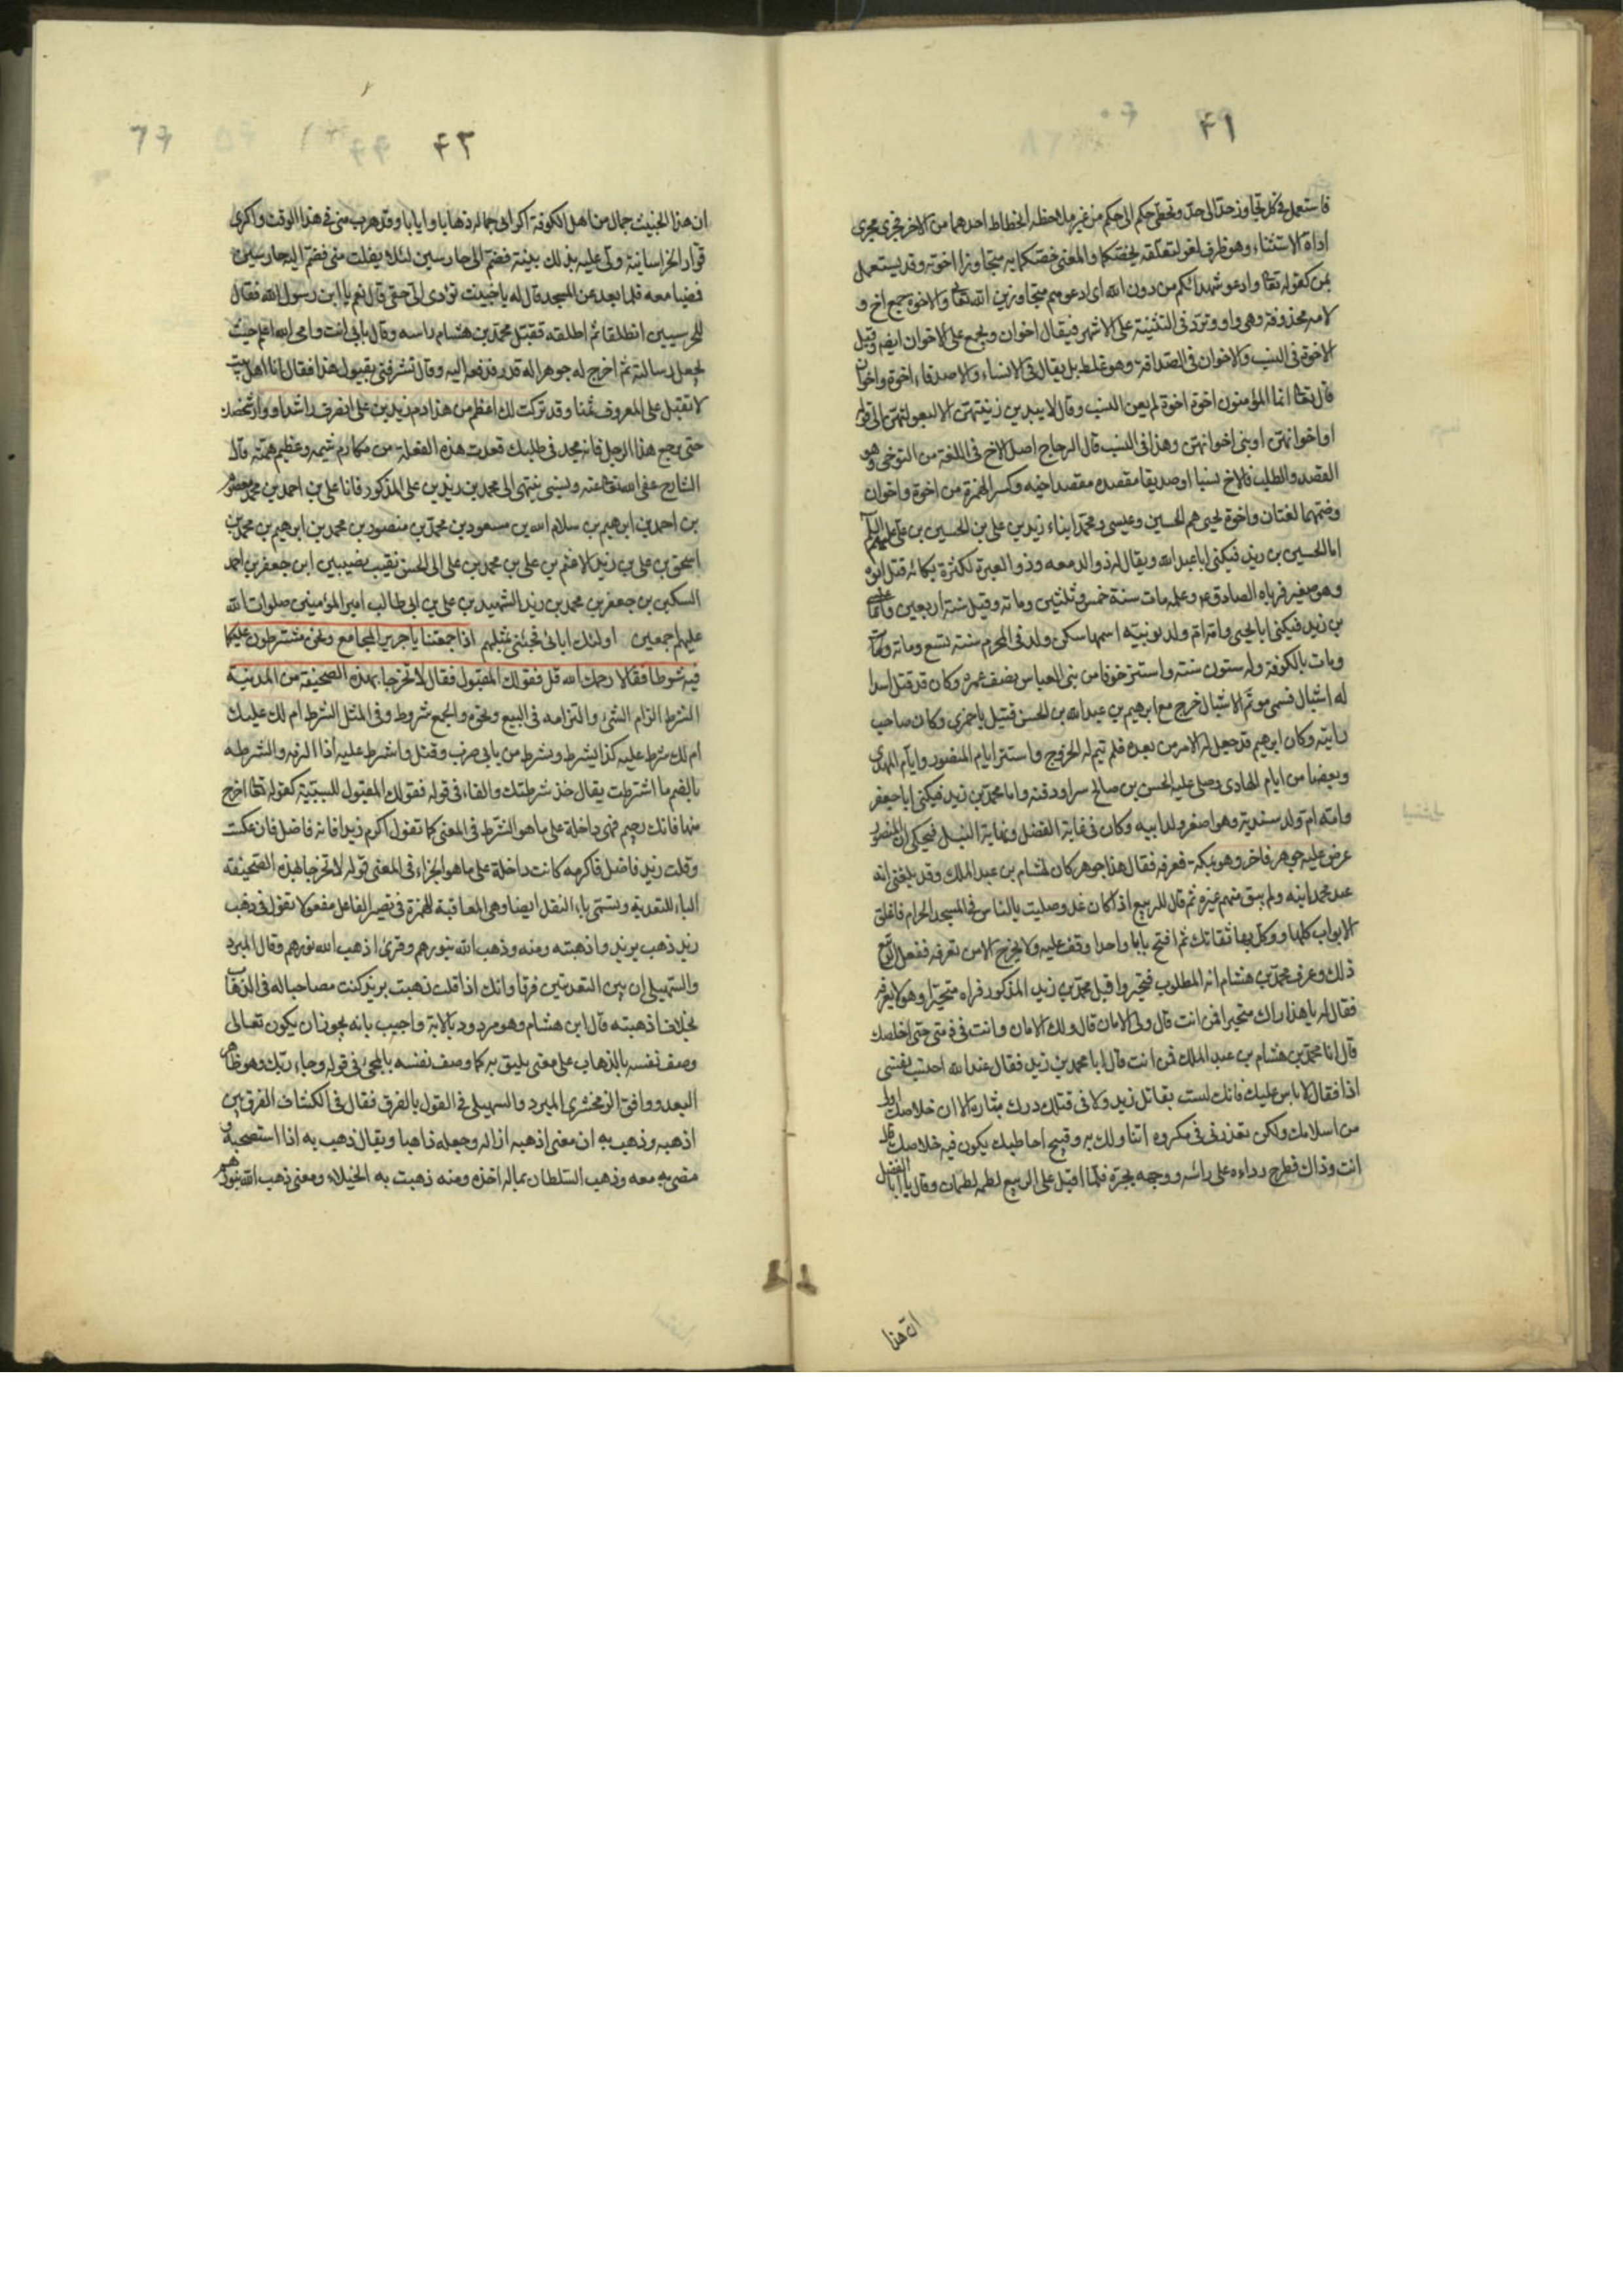 ۴۱
فاستعمل فی کل تجاوز حد الی حد وتخطی حکم الی حکم من غیر ملاحظه انحطاط احدهما من الآخر فجری مجری
اداة الاستثناء وهو ظرف لغو لتعلقه بخصکما والمعنی خصکما به متجاوزا اخوته وقد یستعمل
بمن کقوله تعالی وادعوا شهدائکم من دون الله ای ادعوهم متجاوزین الله تعالی والاخوة جمع اخ و
لامه محذوفة وهی واو وترد فی التثنیة علی الاشهر فیقال اخوان ویجمع علی الاخوان ایضا وقیل
الاخوة فی النسب والاخوان فی الصداقة وهو غلط بل یقال فی الانساء والاصدقاء اخوة واخوان
قال تعالی انما المؤمنون اخوة لم یعن النسب وقال لا یبدین زینتهن الا لبعولتهن الی قوله
او اخوانهن او بنی اخوانهن وهذا فی النسب قال الزجاج اصل الاخ فی اللغة من التوخی وهو
القصد والطلب فالاخ نسبا او صدیقا مقصده مقصد اخیه وکسر الهمزة من اخوة واخوان
وضمهما لغتان واخوة یحیی هم الحسین وعیسی ومحمد ابناء زید بن علی بن الحسین بن علی علیهم السلام
اما الحسین بن زید فیکنی ابا عبد الله ویقال له ذو الدمعه وذو العبرة لکثرة بکائه قتل ابوه
وهو صغیر فرباه الصادق ع وعلمه مات سنة خمس وثلثین ومائة وقیل سنة اربعین واما عیسی
بن زید فیکنی ابا یحیی وامه ام ولد نوبیة اسمها سکن ولد فی المحرم سنة تسع ومائة
ومات بالکوفة وله ستون سنة واستتر خوفا من بنی العباس نصف عمره وکان قد قتل اسدا
له اشبال فسمی موتم الاشبال خرج مع ابرهیم بن عبد الله بن الحسن قتیل باخمری وکان صاحب
رایته وکان ابرهیم قد جعل له الامر من بعده فلم یتم له الخروج واستتر ایام المنصور وایام المهدی
وبعضا من ایام الهادی وصلی علیه الحسن بن صالح سرا ودفنه واما محمد بن زید فیکنی ابا جعفر
وامه ام ولد سندیة وهو اصغر ولد ابیه وکان فی غایة الفضل ونهایة النبل فیحکی ان المنصور
عرض علیه جوهر فاخر وهو بمکة فعرفه فقال هذا جوهر کان لهشام بن عبد الملک وقد بلغنی انه
عند محمد ابنه ولم یبق منهم غیره ثم قال للربیع اذا کان غد وصلیت بالناس فی المسجد الحرام فاغلق
الابواب کلها ووکل بها ثقاتک ثم افتح بابا واحدا وقف علیه ولا یخرج الا من تعرفه ففعل الربیع
ذلک وعرف محمد بن هشام انه المطلوب فتحیر واقبل محمد بن زید المذکور فراه متحیرا وهو لا یعرفه
فقال له یا هذا اراک متحیرا فمن انت قال ولی الامان قال ولک الامان وانت فی ذمتی حتی اخلصک
قال انا محمد بن هشام بن عبد الملک فمن انت قال انا محمد بن زید فقال عند الله احتسب نفسی
اذا فقال لا باس علیک فانک لست بقاتل زید ولا فی قتلک درک بثاره الان خلاصک اولی
من اسلامک ولکن تعذرنی فی مکروه اتناولک به وقبیح اخاطبک یکون فیه خلاصک قال
انت وذاک فطرح رداءه علی رأسه ووجهه یجره فلما اقبل علی الربیع لطمه لطمات وقال یا ابا الفضل
ان هذا
۴۳
ان هذا الخبیث جمال من اهل الکوفة اکرانی جماله ذهابا وایابا وقد هرب منی فی هذا الوقت واکری
قواد الخراسانیة ولی علیه بذلک بینة فضم الی حارسین لئلا یفلت منی فضم الیه حارسین
فمضیا معه فلما بعد عن المسجد قال له یا خبیث تؤدی الی حقی قال نعم یا ابن رسول الله فقال
للحرسیین انطلقا ثم اطلقه فقبل محمد بن هشام راسه وقال بابی انت وامی الله اعلم حیث
یجعل رسالته ثم اخرج له جوهرا له قدر فدفعه الیه وقال تشرفنی بقبول هذا فقال انا اهل بیت
لا نقبل علی المعروف ثمنا وقد ترکت لک اعظم من هذا دم زید بن علی انصرف راشدا ووار شخصک
حتی یرجع هذا الرجل فانه مجد فی طلبک فعدت هذه الفعلة من مکارم شیمه وعظیم همته قال
الشارح عفی الله عنه ونسبی ینتهی الی محمد بن زید بن علی المذکور فانا علی بن احمد بن محمد معصوم
بن احمد بن ابرهیم بن سلام الله بن مسعود بن محمد بن منصور بن محمد بن ابرهیم بن محمد بن
اسحق بن علی بن زید الاعثم بن علی بن محمد بن علی ابی الحسن نقیب نصیبین ابن جعفر بن احمد
السکین بن جعفر بن محمد بن زید الشهید بن علی بن ابی طالب امیر المؤمنین صلوات الله
علیهم اجمعین اولئک ابائی فجئنی بمثلهم اذا جمعتنا یا جریر المجامع ونحن مشترطون علیکما
فیه شرطا فقالا رحمک الله قل فقولک المقبول فقال لا تخرجا بهذه الصحیفة من المدینة
الشرط الزام الشیء والتزامه فی البیع ونحوه والجمع شروط وفی المثل الشرط املک علیک
ام لک شرط علیه کذا یشرط ویشرط من بابی ضرب وقتل واشرط علیه اذا الزمه والشرطه
بالضم ما اشترطت یقال خذ شرطتک والفاء فی قوله فقولک المقبول للسببیة کقوله تعالی اخرج
منها فانک رجیم فهی داخلة علی ما هو الشرط فی المعنی کما تقول اکرم زیدا فانه فاضل فان عکست
وقلت زید فاضل فاکرمه کانت داخلة علی ما هو الجزاء فی المعنی قوله لا تخرجا بهذه الصحیفة
الباء للتعدیة وتسمی باء النقل ایضا وهی المعاقبة للهمزة فی تصییر الفاعل مفعولا تقول فی ذهب
زید ذهب بزید واذهبته ومنه وذهب الله بنورهم وقرئ اذهب الله نورهم وقال المبرد
والسهیلی ان بین التعدیتین فرقا وانک اذا قلت ذهبت بزید کنت مصاحبا له فی الذهاب
بخلاف اذهبته قال ابن هشام وهو مردود بالایة واجیب بانه یجوز ان یکون تعالی
وصف نفسه بالذهاب علی معنی یلیق به کما وصف نفسه بالمجیء فی قوله وجاء ربک وهو ظاهر
البعد ووافق الزمخشری المبرد والسهیلی فی القول بالفرق فقال فی الکشاف الفرق بین
اذهبه وذهب به ان معنی اذهبه ازاله وجعله ذاهبا ویقال ذهب به اذا استصحبه و
مضی به معه وذهب السلطان بماله اخذه ومنه ذهبت به الخیلاء ومعنی ذهب الله بنورهم